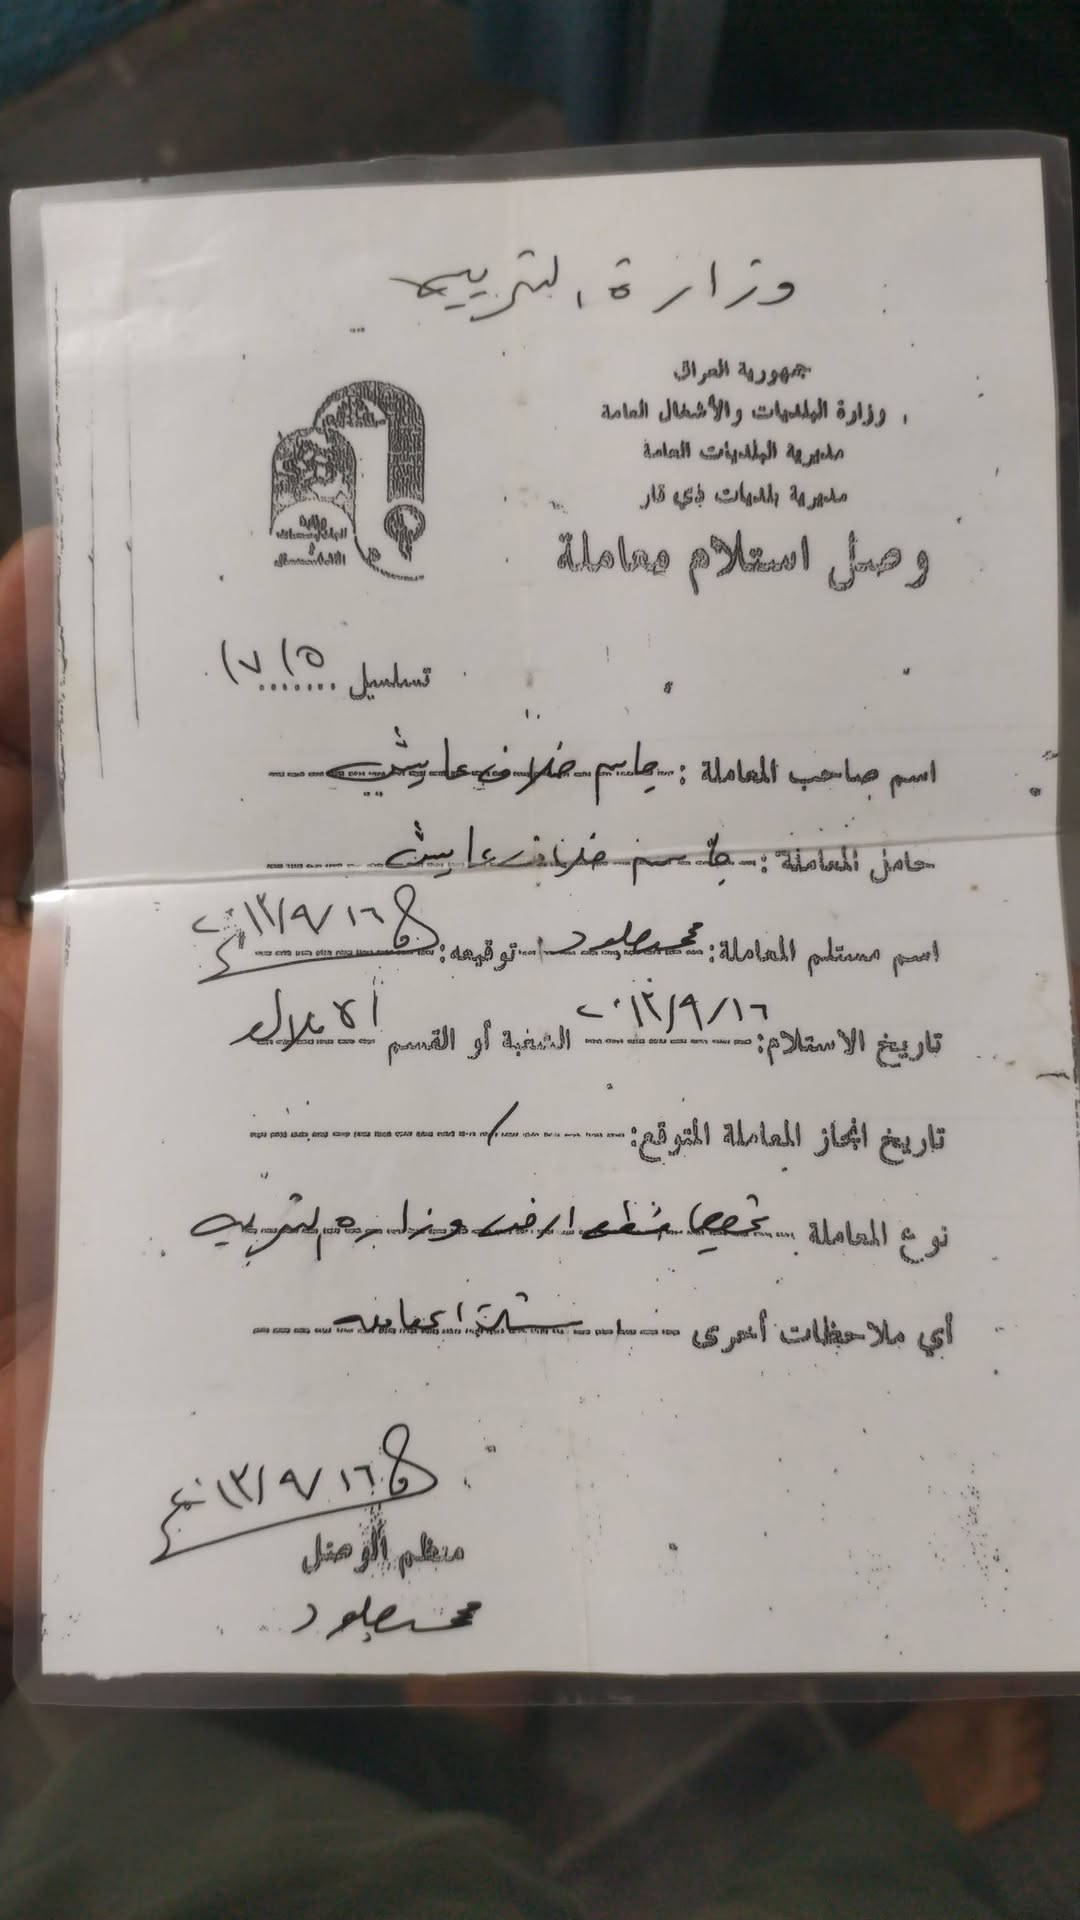 وزارة التربية
جمهورية العراق
وزارة البلديات والأشغال العامة
مديرية البلديات العامة
مديرية بلديات ذي قار
وصل استلام معاملة
تسلسل ١٧١٥
اسم صاحب المعاملة : جاسم خلاف عايش
حامل المعاملة : جاسم خلاف عايش
اسم مستلم المعاملة: محمد توقيعه: ٢٠١٣/٩/١٦
تاريخ الاستلام: ٢٠١٣/٩/١٦ الشعبة أو القسم الاملاك
تاريخ انجاز المعاملة المتوقع: /
نوع المعاملة تخصيص قطعة ارض وزارة التربيه
أي ملاحظات أخرى المعامله
٢٠١٣/٩/١٦
منظم الوصل
محمد